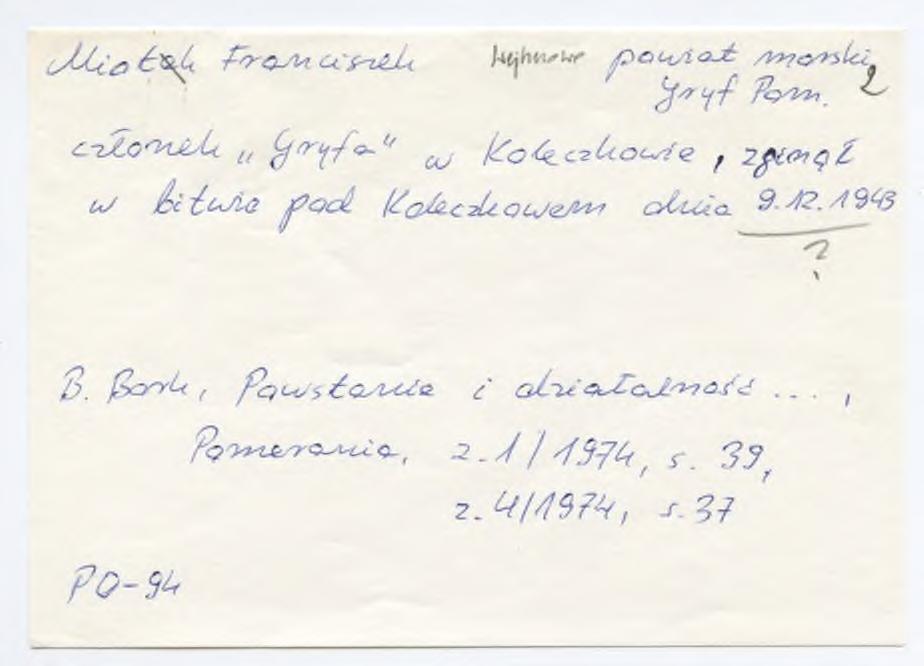 Miotk Franciszek Wejherowo powiat morski
Gryf Pom. 2
członek "Gryfa" w Koleczkowie, zginął
w bitwie pod Koleczkowem dnia 9.12.1943
?
B. Bork, Powstanie i działalność ...,
Pomerania, z.1/1974, s. 39,
z.4/1974, s.37
PO-94